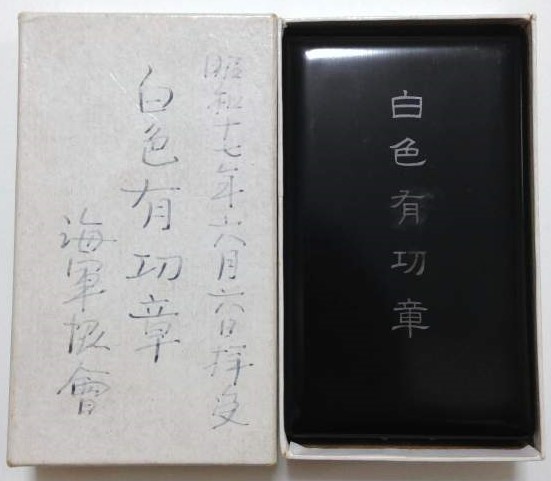 昭和十七年六月六日拝受
白色有功章
海軍協會
白色有功章